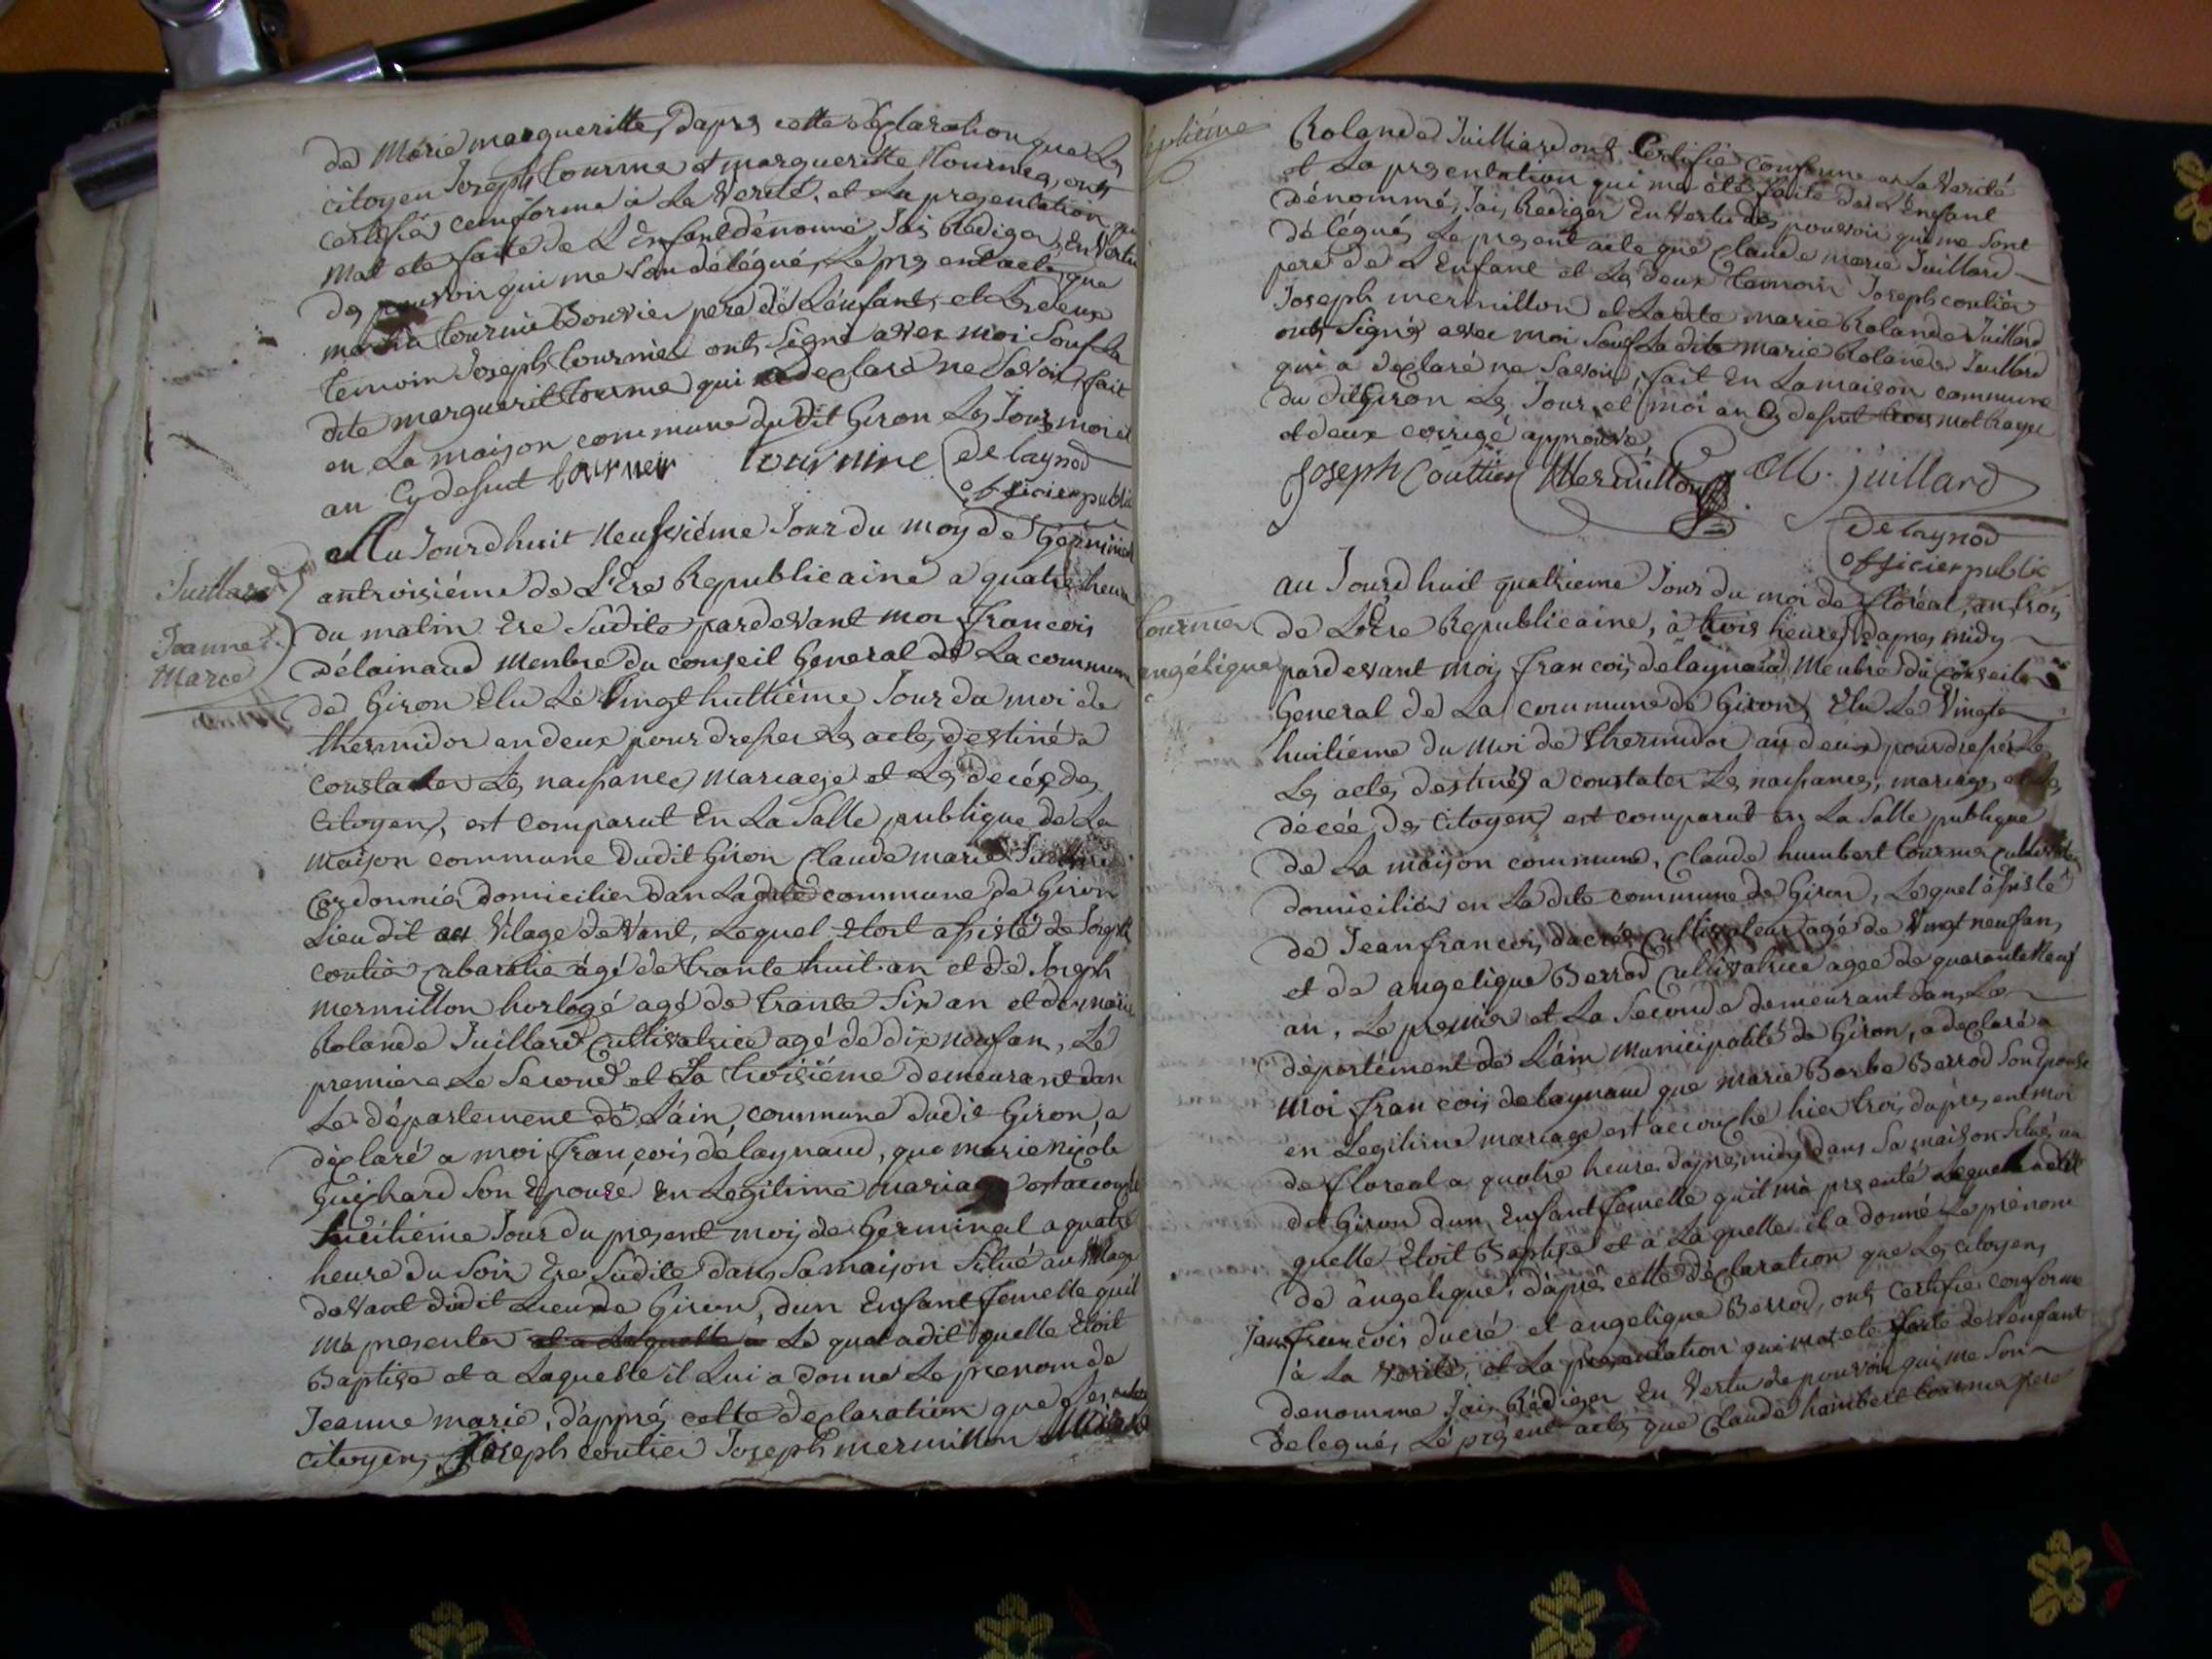 de Marie margueritte, daprs cette déclaration que Les
citoyen Joseph tournie et margueritte tournier, ont
certifiés comforme à La Verité, et La presentation qui
mat ete faite de L'Enfant dénomé, Jais Rediger, En Vertu
des pouvoir qui me son délégué, Le present acte, que
tournie Bouvier pere de L'enfant, et Les deux
temoin Joseph tournier ont Signé avec moi Sauf La
dite marguerit tournie qui a déclaré ne Savoir, fait
en La maison commune du dit Giron Les Jour, moi et
an Cy dessut tournier tournine delaynod
officier public
Juillard
Jeanne
Marie
Au Jourdhuit Neufviéme Jour du moy de Germinal
antroisiéme de L'Ere Republicaine a quatre heure
du matin Ere Sudite pardevant moi francois
Délainaud Menbre du conseil General de La commune
de Giron Elu Le Vingt huitiéme Jour du moi de
thermidor an deux pour dresser Les actes destiné a
constater Les naissances mariage et Les decés des
Citoyens, est comparut En La Salle publique de La
maison commune dudit Giron Claude marie Juillard
Cordonnié domicilier dan La dite commune de Giron
Lieu dit au Vilage deVant, Lequel Etoit assisté de Joseph
coutier cabaretie âgé de trante huit an et de Joseph
mermillon horlogé agé de trante Six an et de marie
Rolande Juillard Cultivatrice agé de dix neuf an, Le
premiere Le Second et La troisiéme demeurant dan
Le département de L'ain, commune dudit Giron, a
déclaré a moi françois délaynaud, que marie nicole
Guichard Son Epouse En Legitime mariage est accouché
huitiéme Jour du present mois de Germinal a quatre
heure du Soir Ere Sudite dans Sa maison Situé au Vilage
devant dudit Lieu de Giron, dun Enfant femelle quil
ma presenter et a Laquelle a Le quel a dit quelle Etoit
Baptise et a Laquelle il Lui a donné Le prenom de
Jeanne marie, d'apprés cette declaration que Les
citoyens Joseph coutier Joseph mermillon Marie
Rolande Juilliard ont Certifié Conforme a La Verité
et La presentation qui ma été faite de L'Enfant
Dénommé, Jais Rediger En Vertu des pouvoir qui me Sont
délégués Le present acte que Claude marie Juillard
pere de L'Enfant et Les deux temoin Joseph coutier
Joseph mermillon et La dite marie Rolande Juillard
ont Signés avec moi Sauf La dite Marie Rolande Juillard
qui a déclaré ne Savoir, fait En La maison commune
du dit Giron Les Jour, et moi an Cy dessut trois mot Rayé
et deux corrigé approuvé
Joseph Couttier Mermillon CM. juillard
Delaynod
officier public
tournier
angélique
au Jourdhuit quatrieme Jour du moi de floréal, an trois
de L'Ere Republicaine, à trois heures dapres midy
pardevant moi, francois delaynaud Menbre du Conseil
General de La commune de Giron, Elu Le Vingte
huitiéme du moi de thermidor an deux pour dresser Les
Les actes destinés a constater Les naissances, mariages et Les
décée des Citoyens est comparut En La Salle publique
de La maison commune, Claude humbert tournier Cultivateur
domiciliés en La dite commune de Giron, Lequel assisté
de Jean francois, ducrée Cultivateur agé de Vingt neuf an,
et de angelique Berrod Cultivatrice agée de quarante Neuf
an, Le premier et La Seconde demeurant dan Le
départément de L'ain Municipalité de Giron, a declaré a
Moi francois delaynaud que marie Barbe Berrod Son Epouse
en Legitime mariage est accouché hier trois, du present moi
de floreal a quatre heure dapres midy dans Sa maison Situé au
dit Giron dun Enfant femelle quil ma presenté Lequel a dit
quelle Etoit Baptise et a Laquelle il a donné Le prénom
de ângelique, d'aprés cette déclaration que Les citoyens
Jean francois ducré et angelique Berrod, ont certifier comforme
à La verité, et La presentation qui mat ete faite de L'enfant
denomme Jais Rédiger En Vertu de pouvoir qui me Son
delegués Le present acte, que Claude humbert tournier pere